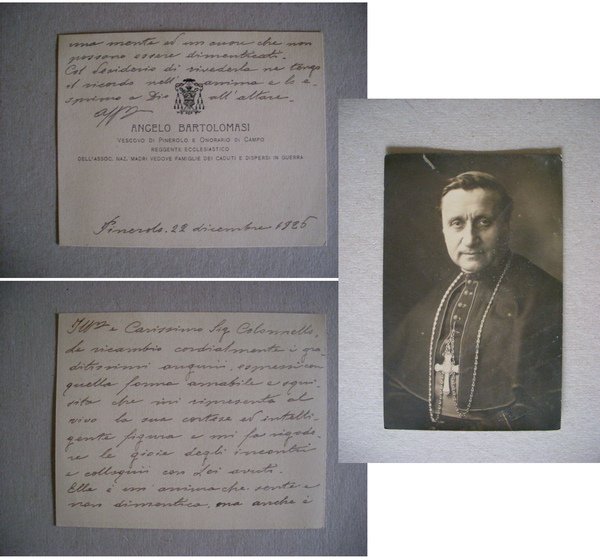 una mente ed un cuore che non
possono essere dimenticati.
Col desiderio di rivederla ne tengo
il ricordo nell'anima e lo e-
sprimo a Dio all'altare.
aff
ANGELO BARTOLOMASI
VESCOVO DI PINEROLO E ONORARIO DI CAMPO
REGGENTE ECCLESIASTICO
DELL'ASSOC. NAZ. MADRI VEDOVE FAMIGLIE DEI CADUTI E DISPERSI IN GUERRA
Pinerolo, 22 dicembre 1925
Ill e Carissimo Sig Colonnello,
Le ricambio cordialmente i gra-
ditissimi auguri, espressi con
quella forma amabile e squi-
sita che mi ripresenta al
vivo la sua cortese ed intelli-
gente figura e mi fa rigode-
re le gioie degli incontri
e colloqui con Lei avuti.
Ella è un anima che sente e
non dimentica, ma anche è